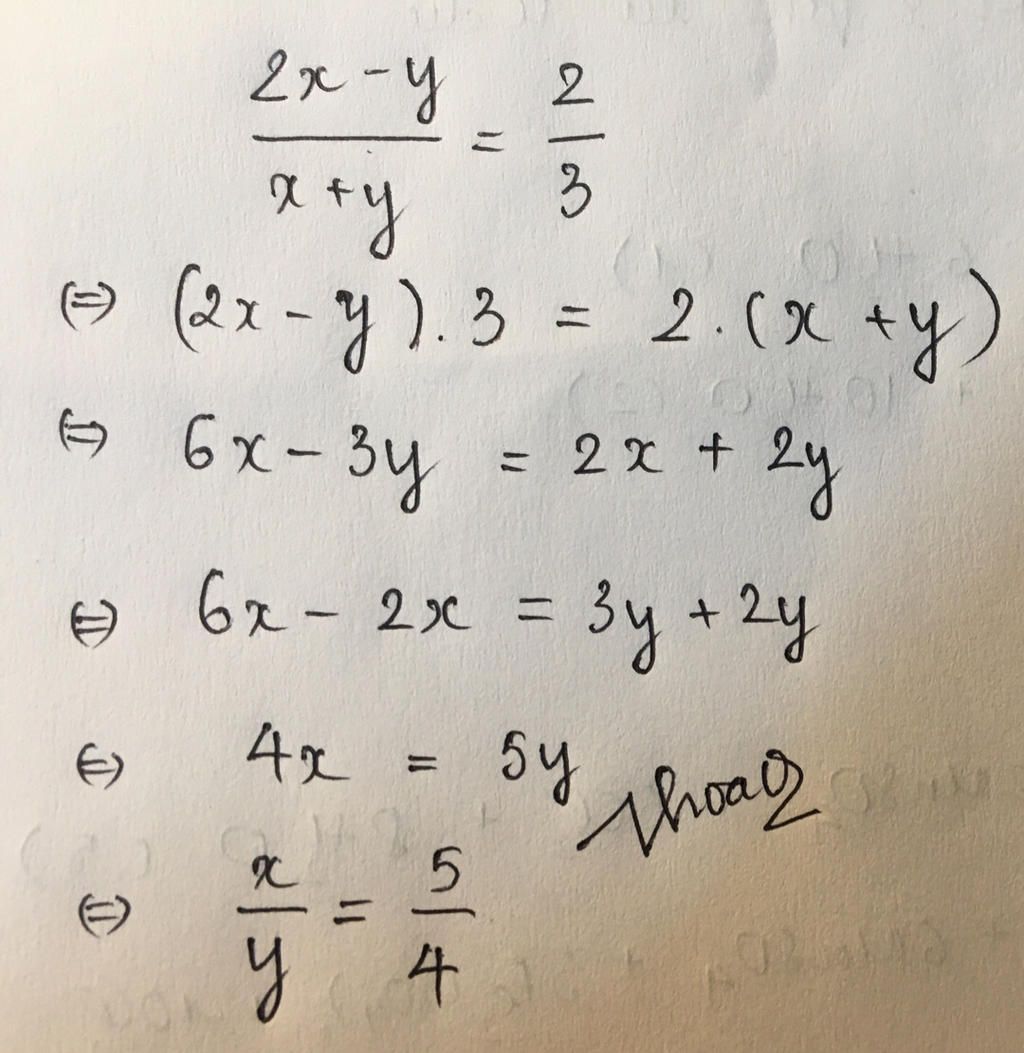 (2x - y)/(x + y) = 2/3
⇔ (2x - y) . 3 = 2 . (x + y)
⇔ 6x - 3y = 2x + 2y
⇔ 6x - 2x = 3y + 2y
⇔ 4x = 5y
⇔ x/y = 5/4